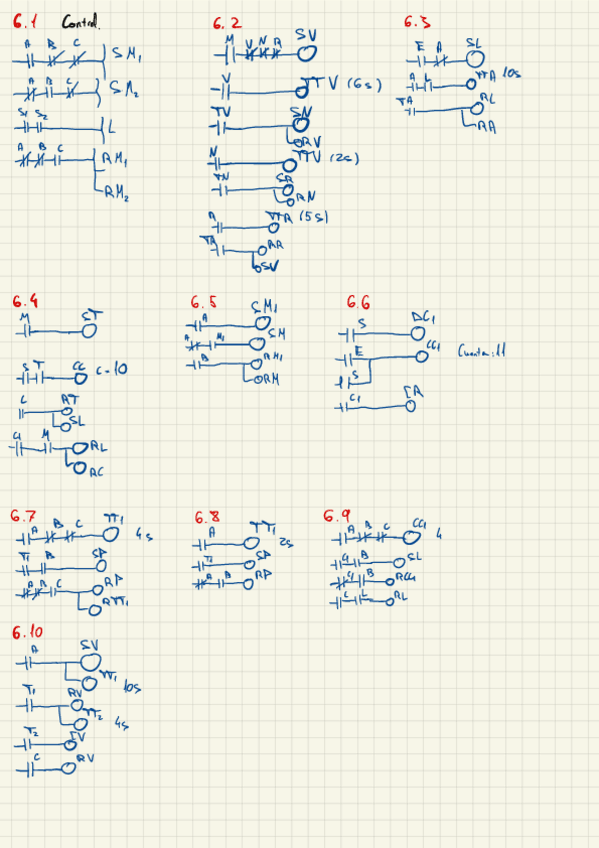 6.1 Control.
A B C SM1
A B C SM2
S1 S2 L
A B C RM1
RM2
6.2
M V N R SV
V TTV (6s)
TV SN
RV
N TTV (2s)
TN SR
RN
A TTR (5s)
TA RR
SV
6.3
E A SL
A L TTA 10s
TA RL
RA
6.4
M ST
S T CC C-10
C RT
SL
C1 M RL
RC
6.5
A SM1
A M1 SM
B RM1
RM
6.6
S DC1
E CC1 Cuenta:11
S
C1 IR
6.7
A B C TT1 4s
T1 B SP
A B C RP
RTT1
6.8
A TT1 2s
T1 SP
A B RP
6.9
A B C CC1 4
C1 B SL
C1 B RC1
C L RL
6.10
A SV
TT1 10s
T1 RV
TT2 4s
T2 IV
C RV